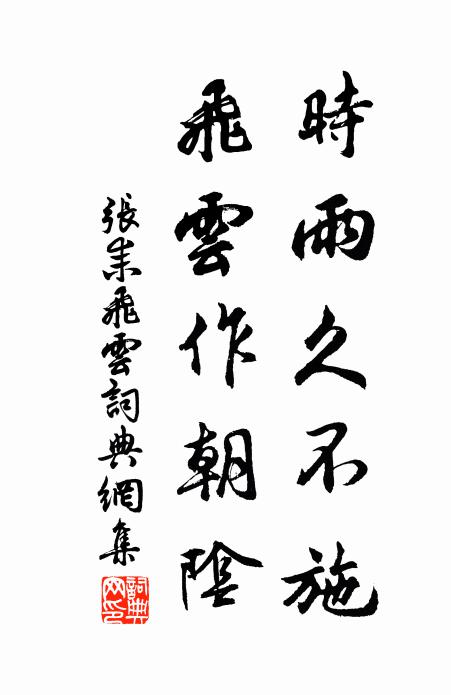 時雨久不施
飛雲作朝陰
張耒飛雲詞典網集
詞典網印